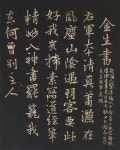 金生書
右軍本清真瀟灑在
風塵山陰遇羽客要此
好鵝賓掃素寫道經筆
精妙入神書罷籠鵝
去何曾別主人